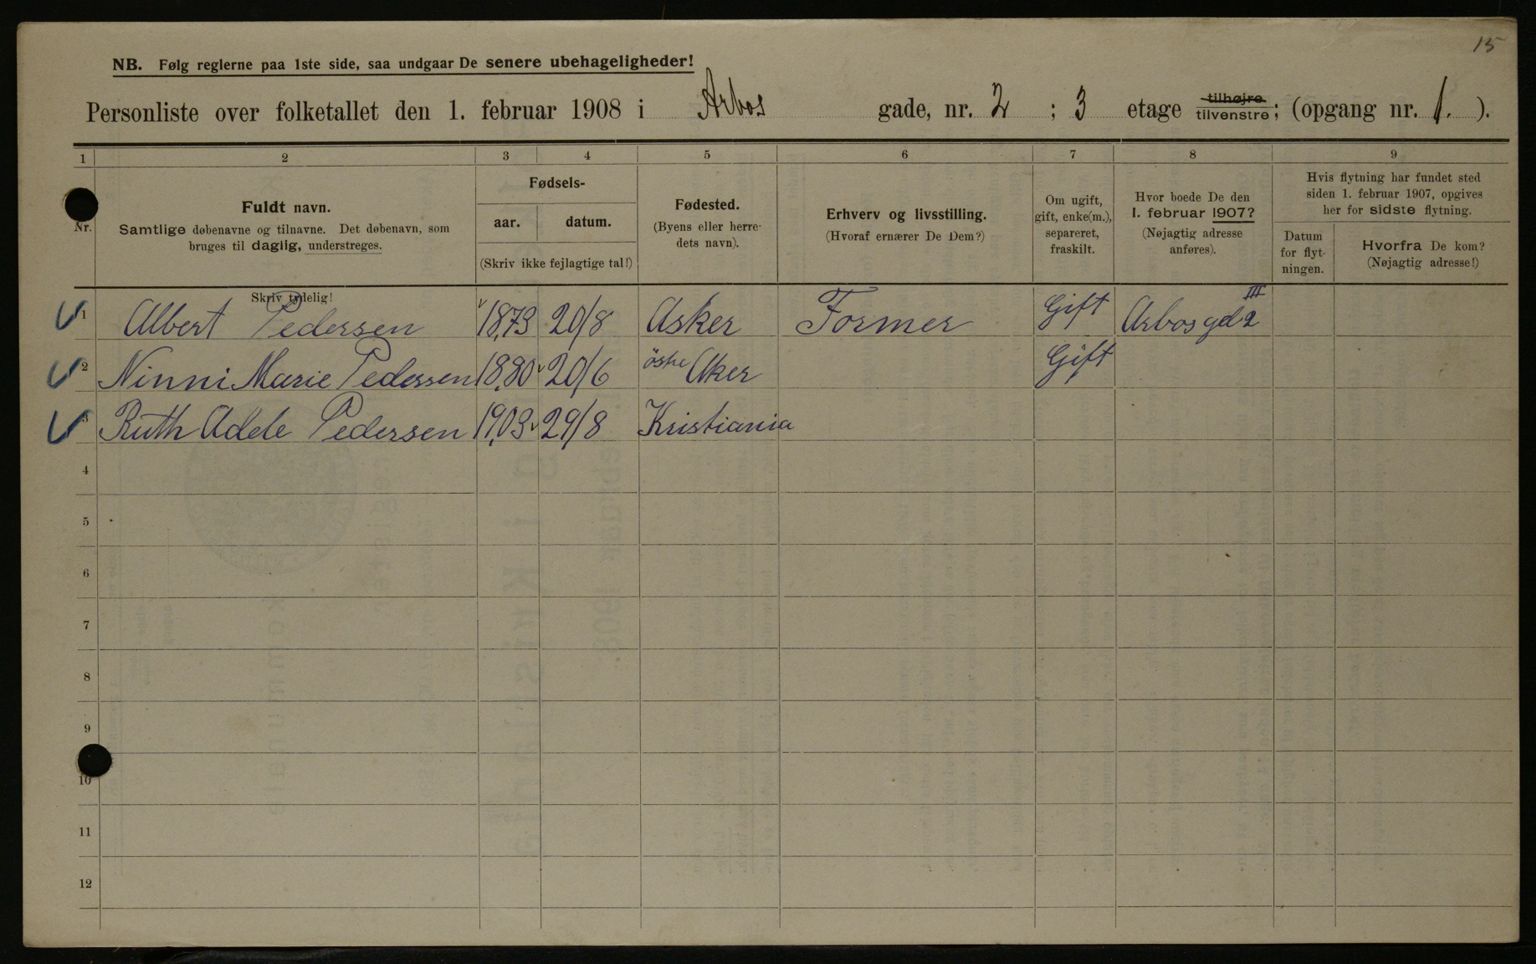 15
NB. Følg reglerne paa 1ste side, saa undgaar De senere ubehageligheder!
Personliste over folketallet den 1. februar 1908 i Arbos gade, nr. 2 ; 3 etage tilhøjre tilvenstre ; (opgang nr. 1. ).
1 2 3 4 5 6 7 8 9
Nr.
Fuldt navn.
Samtlige døbenavne og tilnavne. Det døbenavn, som
bruges til daglig, understreges.
Fødsels-
aar. datum.
(Skriv ikke fejlagtige tal!)
Fødested.
(Byens eller herre-
dets navn).
Erhverv og livsstilling.
(Hvoraf ernærer De Dem?)
Om ugift,
gift, enke(m.),
separeret,
fraskilt.
Hvor boede De den
1. februar 1907?
(Nøjagtig adresse
anføres).
Hvis flytning har fundet sted
siden 1. februar 1907, opgives
her for sidste flytning.
Datum
for flyt-
ningen.
Hvorfra De kom?
(Nøjagtig adresse!)
Skriv tydelig!
1 Albert Pedersen 1873 20/8 Asker Former Gift Arbosgd 2 III
2 Ninni Marie Pedersen 1880 20/6 östre Aker Gift
3 Ruth Adele Pedersen 1903 29/8 Kristiania
4
5
6
7
8
9
10
11
12